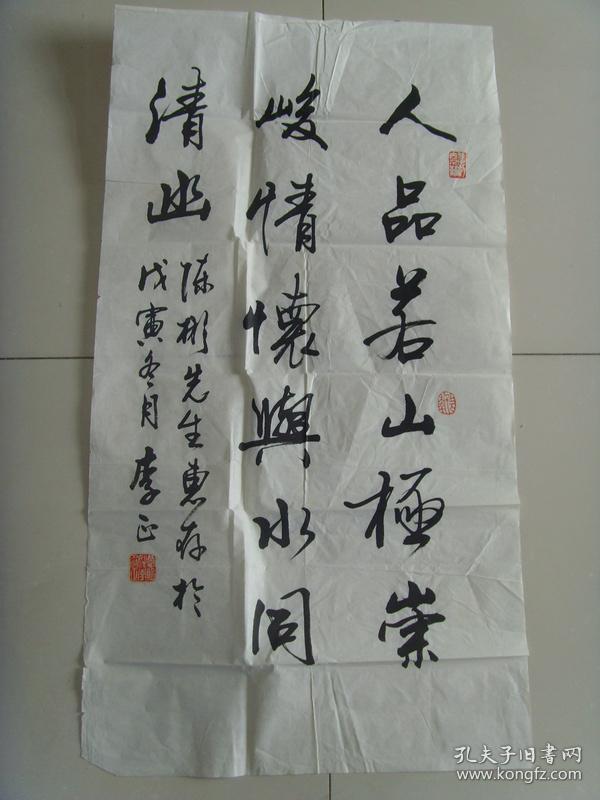 人品若山極崇
峻情懷與水同
清幽
陈彬先生惠存於
戊寅冬月 李正
孔夫子旧书网
www.kongfz.com